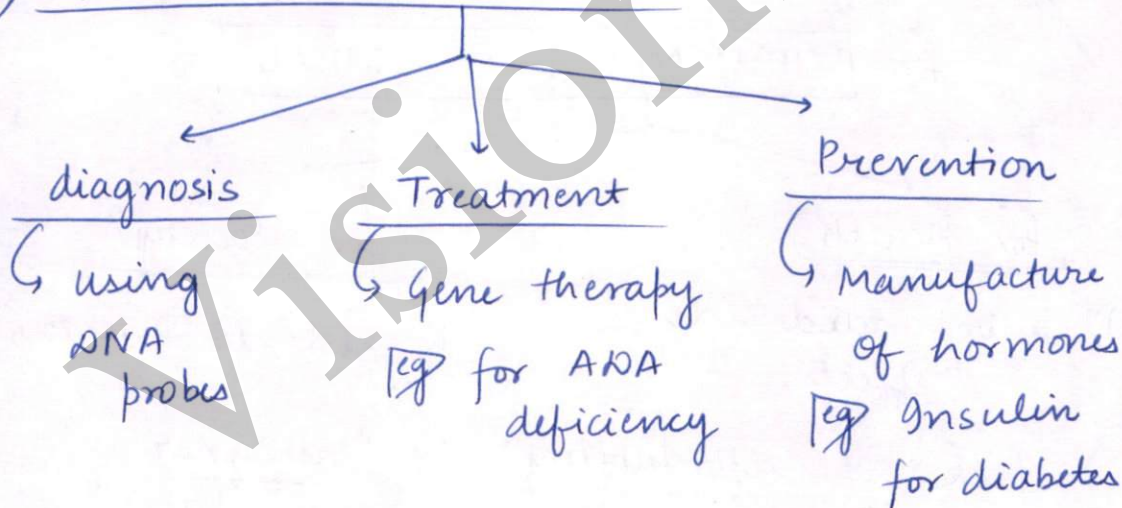 diagnosis
using
DNA
probes
Treatment
Gene therapy
eg for ADA
deficiency
Prevention
Manufacture
of hormones
eg Insulin
for diabetes
Vision